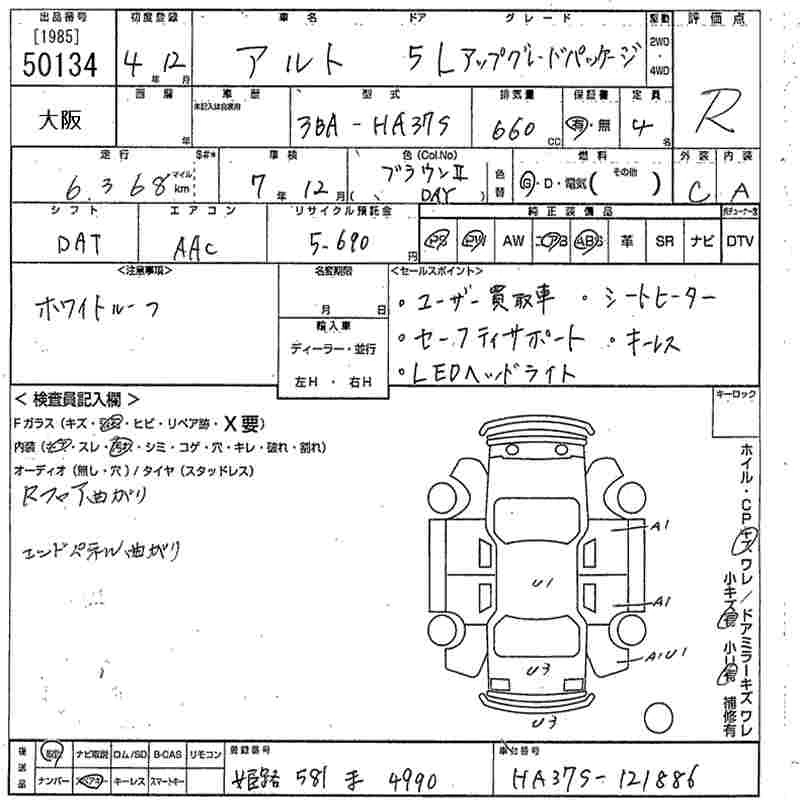 出品番号 初度登録 車名 ドア グレード 駆動 評価点
[1985]
50134 4年 12月 アルト 5 Lアップグレードパッケージ 2WD・4WD R
大阪 西暦 年 車歴 未記入は自家用 型式 排気量 保証書 定員
3BA-HA37S 660cc 有・無 4名
走行 S#* 車検 色(Col.No) 燃料 外装 内装
6.368 マイル km 7年 12月 ブラウンⅡ (DAY) 色替 G・D・電気( その他 ) C A
シフト エアコン リサイクル預託金 純正装備品
DAT AAC 5-690円 PS PW AW エアB ABS 革 SR ナビ DTV
<注意事項> 名変期限 <セールスポイント>
ホワイトルーフ 月 日 ・ユーザー買取車 ・シートヒーター
輸入車 ・セーフティサポート ・キーレス
ディーラー・並行 ・LEDヘッドライト
左H・右H
<検査員記入欄> キーロック
Fガラス(キズ・ ・ヒビ・リペア跡・X要)
内装( ・スレ・ ・シミ・コゲ・穴・キレ・破れ・割れ)
オーディオ(無し・穴)/タイヤ(スタッドレス)
Rフロア曲がり
エンドパネル曲がり
A1
U1
A1
A1U1
U3
U3
ホイル・CPキズ ワレ/ドアミラーキズ ワレ
小キズ有 小凹有 補修有
後送品 ナビ取説 ロム/SD B-CAS リモコン 登録番号 車台番号
ナンバー スペアキー キーレス スマートキー 姫路 581 ま 4990 HA37S-121886